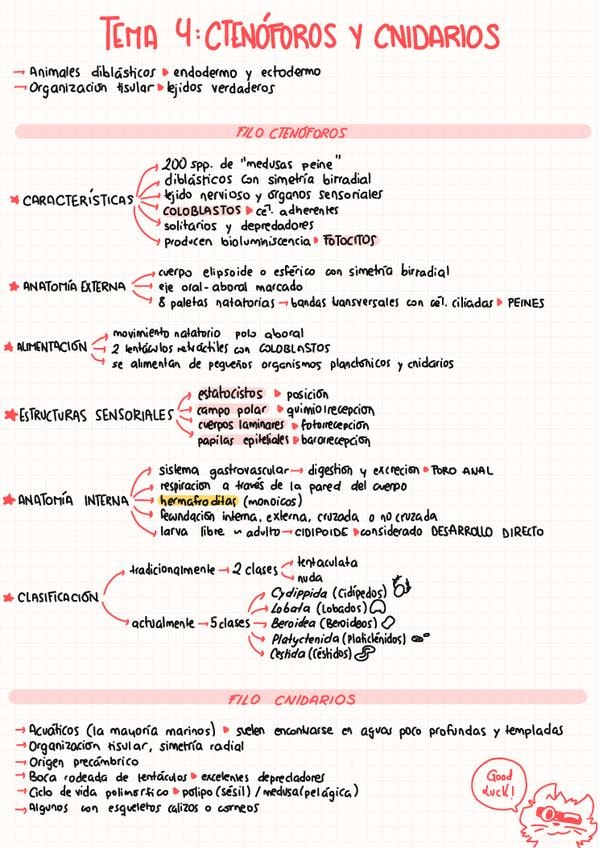 TEMA 4: CTENÓFOROS Y CNIDARIOS
→ Animales diblásticos ▸ endodermo y ectodermo
→ Organización tisular ▸ tejidos verdaderos
FILO CTENÓFOROS
★ CARACTERÍSTICAS
200 spp. de "medusas peine"
diblásticos con simetría birradial
tejido nervioso y órganos sensoriales
COLOBLASTOS ▸ cél. adherentes
solitarios y depredadores
producen bioluminiscencia ▸ FOTOCITOS
★ ANATOMÍA EXTERNA
cuerpo elipsoide o esférico con simetría birradial
eje oral-aboral marcado
8 paletas natatorias → bandas transversales con cél. ciliadas ▸ PEINES
★ ALIMENTACIÓN
movimiento natatorio polo aboral
2 tentáculos retráctiles con COLOBLASTOS
se alimentan de pequeños organismos planctónicos y cnidarios
★ ESTRUCTURAS SENSORIALES
estatocistos ▸ posición
campo polar ▸ quimiorrecepción
cuerpos laminares ▸ fotorrecepción
papilas epiteliales ▸ barorrecepción
★ ANATOMÍA INTERNA
sistema gastrovascular → digestión y excreción ▸ PORO ANAL
respiración a través de la pared del cuerpo
hermafroditas (monoicos)
fecundación interna, externa, cruzada o no cruzada
larva libre ≈ adulto → CIDIPOIDE ▸ considerado DESARROLLO DIRECTO
★ CLASIFICACIÓN
tradicionalmente → 2 clases
tentaculata
nuda
actualmente → 5 clases
Cydippida (Cidípedos)
Lobata (Lobados)
Beroidea (Beroideos)
Platyctenida (Platicténidos)
Cestida (Céstidos)
FILO CNIDARIOS
→ Acuáticos (la mayoría marinos) ▸ suelen encontrarse en aguas poco profundas y templadas
→ Organización tisular, simetría radial
→ Origen precámbrico
→ Boca rodeada de tentáculos ▸ excelentes depredadores
→ Ciclo de vida polimórfico ▸ pólipo (sésil) / medusa (pelágica)
→ Algunos con esqueletos calizos o córneos
Good
luck!